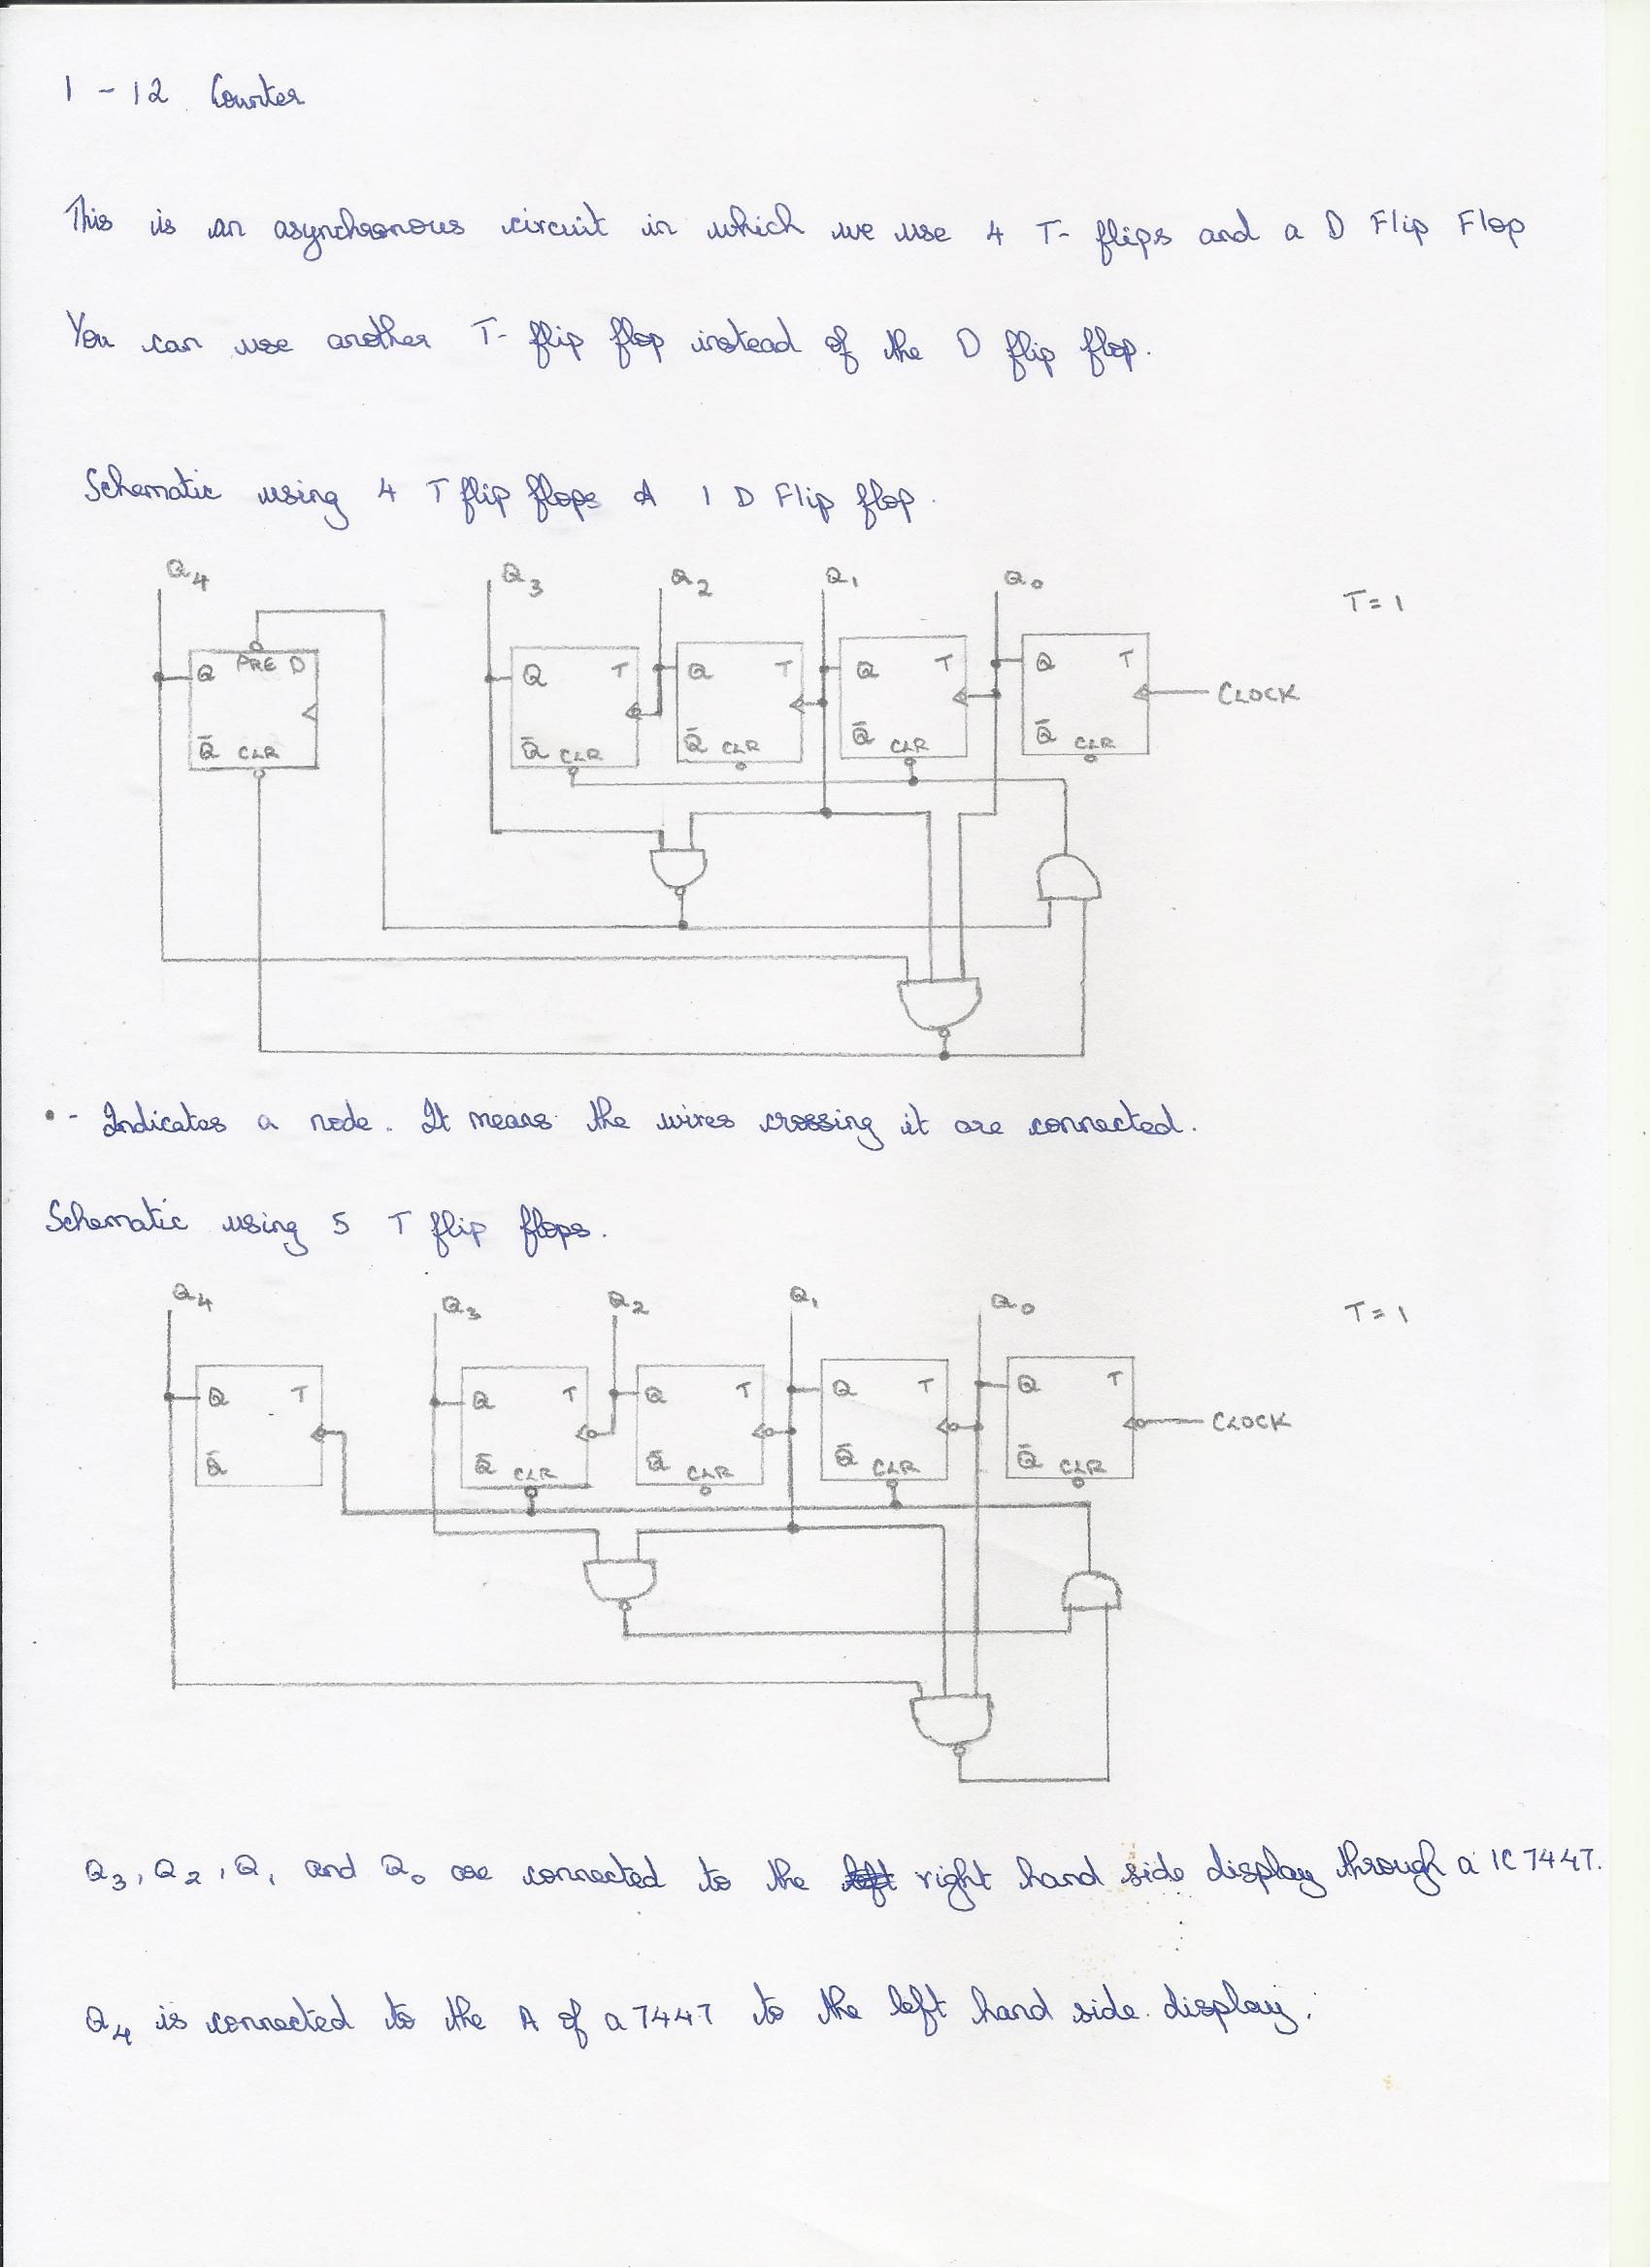 1 - 12 Counter
This is an asynchronous circuit in which we use 4 T- flips and a D Flip Flop
You can use another T- flip flop instead of the D flip flop.
Schematic using 4 T flip flops & 1 D Flip flop.
Q4 Q3 Q2 Q1 Q0 T = 1
Q PRE D Q T Q T Q T Q T CLOCK
Q̄ CLR Q̄ CLR Q̄ CLR Q̄ CLR Q̄ CLR
• - Indicates a node. It means the wires crossing it are connected.
Schematic using 5 T flip flops.
Q4 Q3 Q2 Q1 Q0 T = 1
Q T Q T Q T Q T Q T CLOCK
Q̄ Q̄ CLR Q̄ CLR Q̄ CLR Q̄ CLR
Q3, Q2, Q1 and Q0 are connected to the left right hand side display through a IC 7447.
Q4 is connected to the A of a 7447 to the left hand side display.